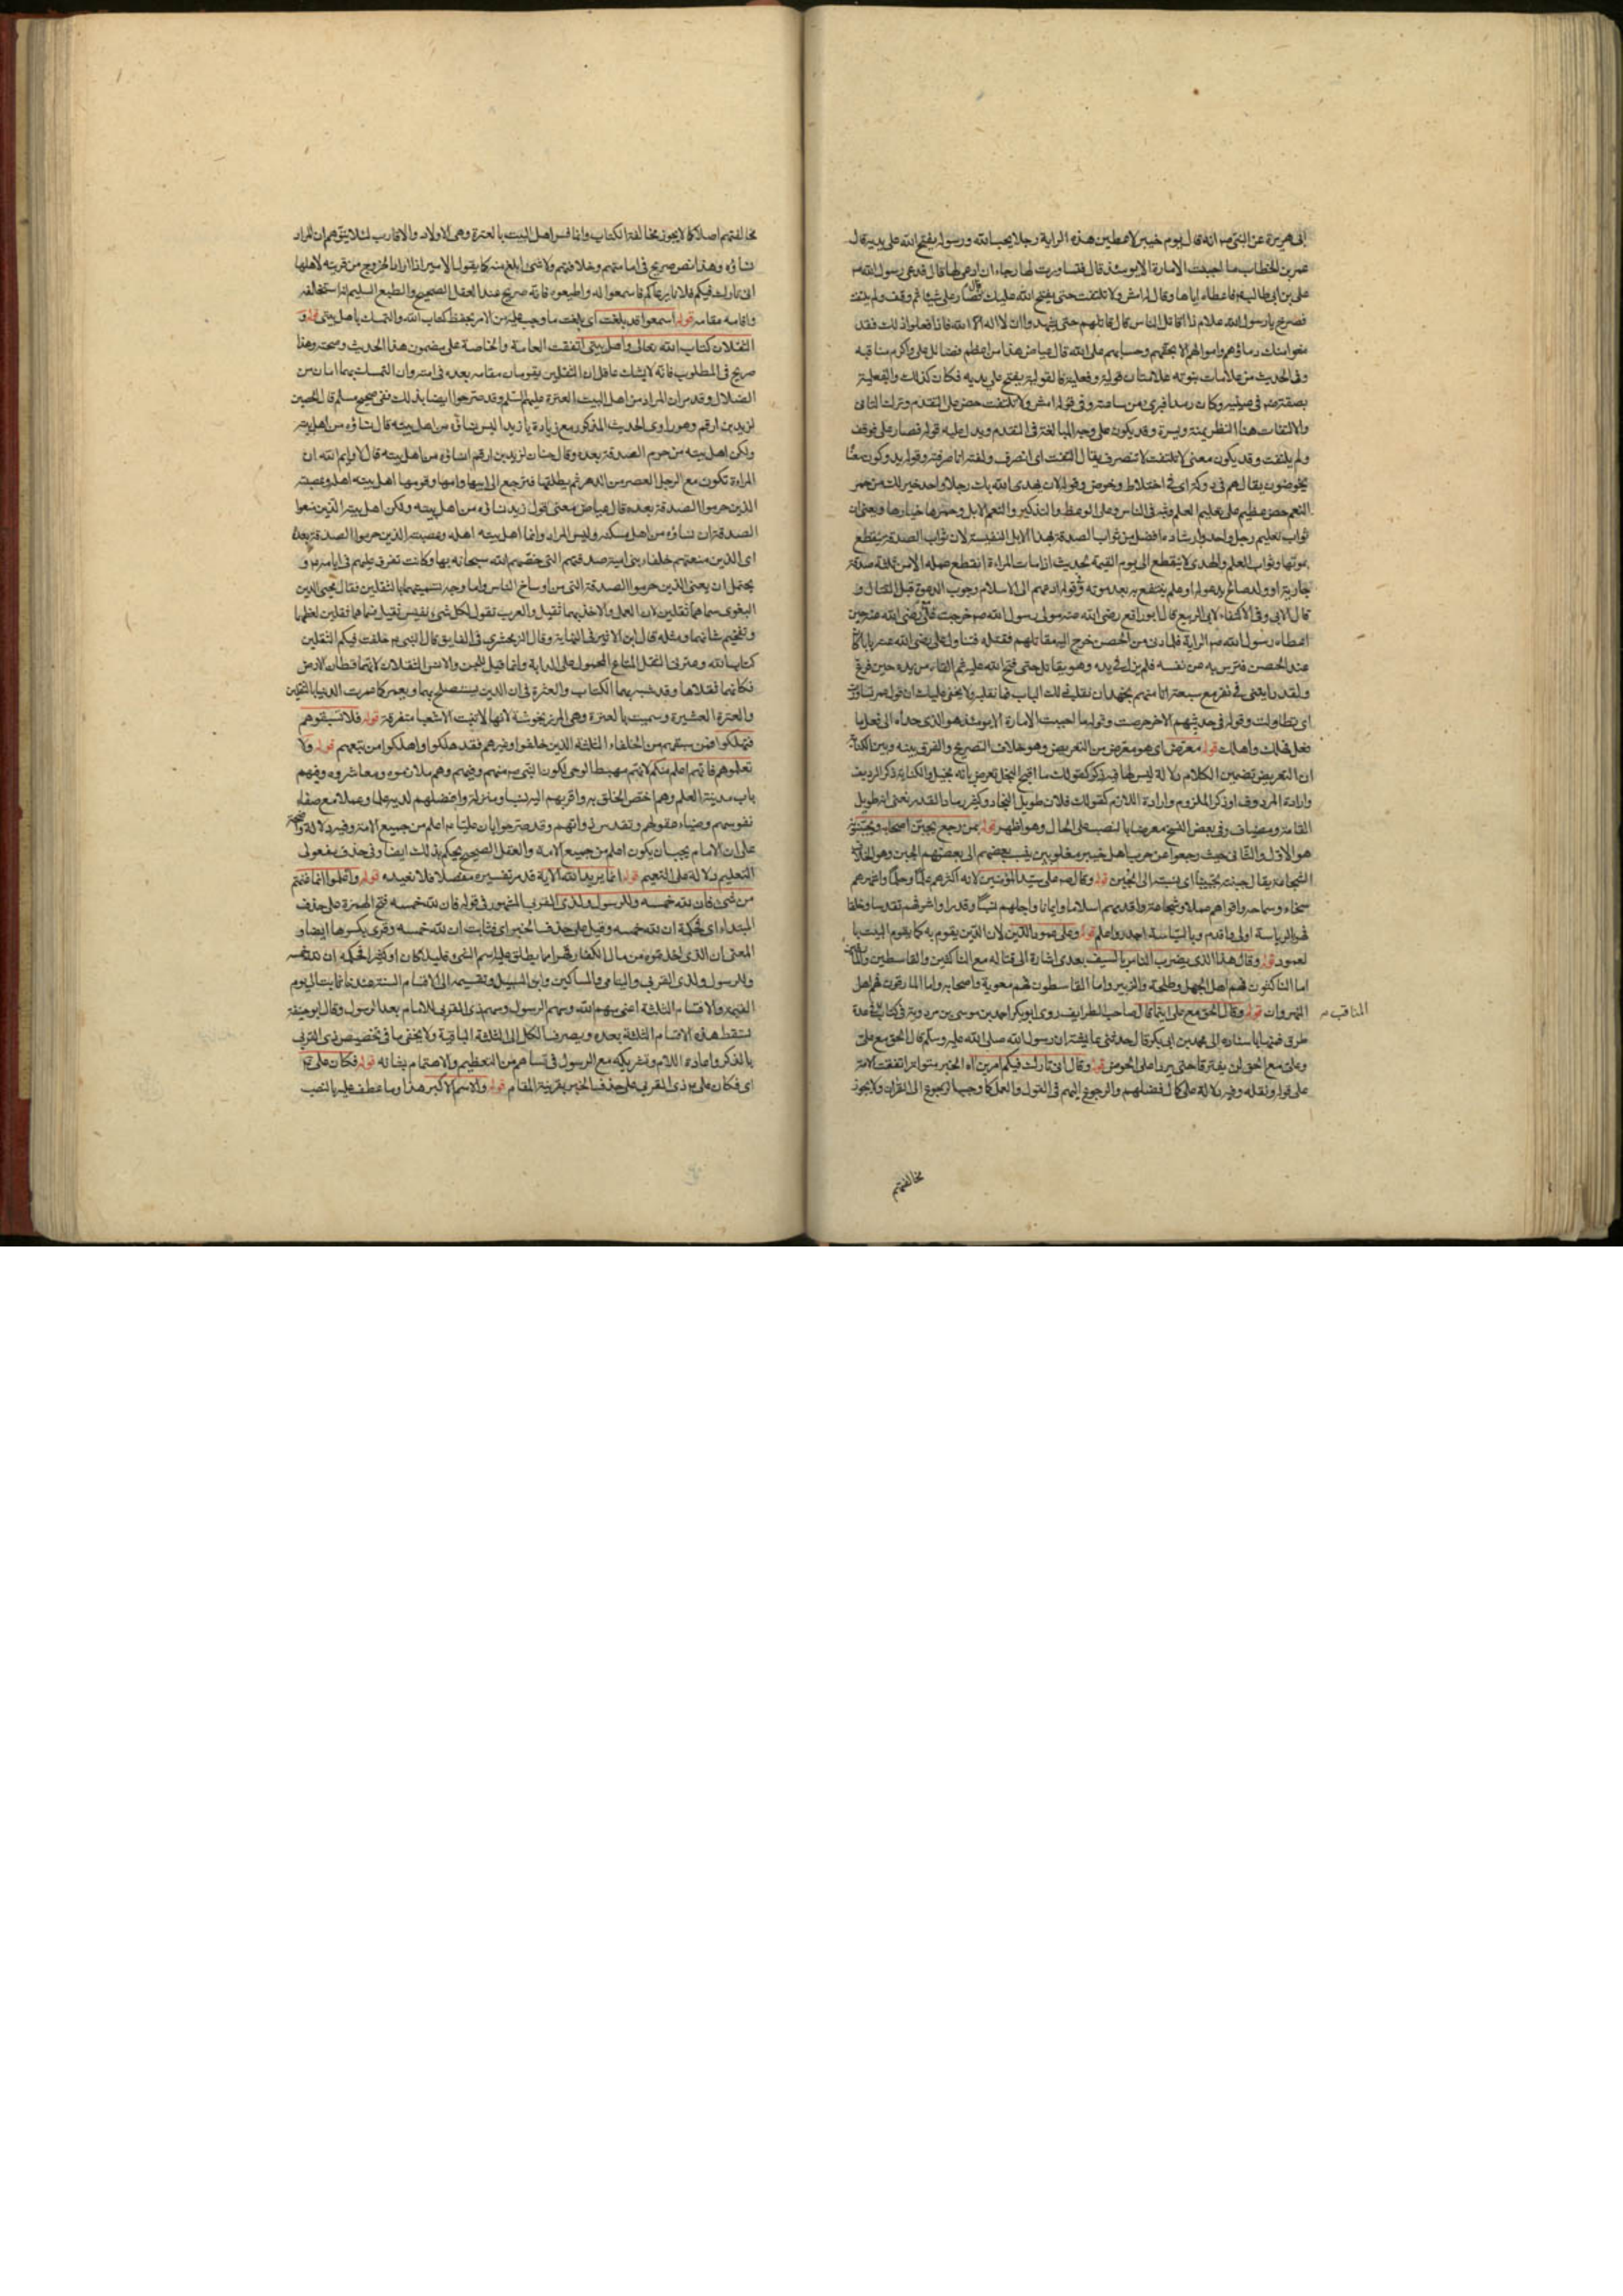 ابى هريرة عن النبى ص انه قال يوم خيبر لاعطين هذه الراية رجلا يحب الله ورسوله يفتح الله على يديه قال
عمر بن الخطاب ما احببت الامارة الا يومئذ قال فتساورت لها رجاء ان ادعى لها قال فدعى رسول الله ص
على بن ابى طالب فاعطاه اياها وقال له امش ولا تلتفت حتى يفتح الله عليك قال فسار على شيئا ثم وقف ولم يلتفت
فصرخ يا رسول الله على ماذا اقاتل الناس قال قاتلهم حتى يشهدوا ان لا اله الا الله فاذا فعلوا ذلك فقد
منعوا منك دماؤهم واموالهم الا بحقهم وحسابهم على الله قال عياض هذا من اعظم فضائل على واكرم مناقبه
وفى الحديث من علامات نبوته علامتان قولية وفعلية فالقولية يفتح على يديه فكان كذلك والفعلية
بصقته فى عينيه وكان رمدا فبرئ من ساعته وفى قوله امش ولا تلتفت حض على التقدم وترك التانى
والالتفات هنا النظر يمنة ويسرة وقد يكون على وجه المبالغة فى التقدم ويدل عليه قوله فسار على فوقف
ولم يلتفت وقد يكون معنى لا تلتفت لا تنصرف يقال التفت اى انصرف ولفته انا صرفته وقوله يدوكون معناه
يخوضون يقال هم فى دوكة اى فى اختلاط وخوض وقوله لان يهدى الله بك رجلا واحد خير لك من حمر
النعم حض عظيم على تعليم العلم وبثه فى الناس وعلى الوعظ والتذكير والنعم الابل وحمرها خيارها ويعنى ان
ثواب تعليم رجل واحد وارشاده افضل من ثواب الصدقة بهذا الابل النفيسة لان ثواب الصدقة ينقطع
بموتها وثواب العلم والهدى لا ينقطع الى يوم القيمة لحديث اذا مات المرء انقطع عمله الا من ثلثة صدقة
جارية او ولد صالح يدعو له او علم ينتفع به بعد موته وقوله ادعهم الى الاسلام وجوب الدعوة قبل القتال و
قال الابى وفى الاكتفاء لابى الربيع قال ابو رافع رضى الله عنه مولى رسول الله ص خرجت مع على رضى الله عنه حين
اعطاه رسول الله ص الراية فلما دنى من الحصن خرج اليه مقاتلهم فقتله فتناول على رضى الله عنه بابا كان
عند الحصن فترس به عن نفسه فلم يزل فى يده وهو يقاتل حتى فتح الله عليه ثم القاه من يده حين فرغ
ولقد رايتنى فى نفر مع سبعة انا منهم نجهد ان نقلب ذلك الباب فما نقلبه ولا يخفى عليك ان قوله عمر تساورت
اى تطاولت وقوله فى حديثهم الاخر حرصت وقوله ما احببت الامارة الا يومئذ هو الذى حداه الى فعل ما
فعل فهلك واهلك قوله معرّض اى هو معرّض من التعريض وهو خلاف التصريح والفرق بينه وبين الكناية
ان التعريض تضمين الكلام دلالة ليس لها فيه ذكر كقولك ما اقبح البخل تعرض بانه بخيل والكناية ذكر الرديف
وارادة المردوف او ذكر الملزوم وارادة اللازم كقولك فلان طويل النجاد وكثير رماد القدر تعنى انه طويل
القامة ومضياف وفى بعض النسخ معرضا بالنصب على الحال وهو اظهر قوله بمن رجع يجبّن اصحابه ويجبّنونه
هو الاول والثانى حيث رجعوا عن حرب اهل خيبر مغلوبين ينسب بعضهم الى بعضهم الجبن وهو خلاف
الشجاعة يقال جبنته تجبينا اى نسبته الى الجبن قوله وقال ص على سيد المؤمنين لانه اكثرهم علما وحلما واغيرهم
سخاء وسماحة واقواهم عملا وشجاعة واقدمهم اسلاما وايمانا واجلهم نسبا وقدرا واشرفهم تقدسا وخلقا
فهو بالرياسة اولى واقدم وبالسياسة اجدر واعلم قوله وعلى عمود الدين لان الدين يقوم به كما يقوم البيت با
لعمود قوله وقال هذا الذى يضرب الناس بالسيف بعدى اشارة الى قتاله مع الناكثين والقاسطين والمارقين
اما الناكثون فهم اصل الجهل وطلحة والزبير واما القاسطون فهم معوية واصحابه واما المارقون فهم اهل
النهروان قوله وقال الحق مع على اينما مال صاحب الطرايف روى ابو بكر احمد بن موسى بن مردويه فى كتاب من عدة
المناقب
طرق فمنها باسناده الى محمد بن ابى بكر قال حدثنى عايشة ان رسول الله صلى الله عليه وسلم قال الحق مع على
وعلى مع الحق لن يفترقا حتى يردا على الحوض قوله وقال انى تارك فيكم امرين اه الخبر متواتر اتفقت الامة
على قوله ونقله وفيه دلالة على كمال فضلهم والرجوع اليهم فى القول والعمل كما وجب الرجوع الى القران ولا يجوز
مخالفتهم
مخالفتهم اصلا كما لا يجوز مخالفة الكتاب وانما فسر اهل البيت بالعترة وهى الاولاد والاقارب لئلا يتوهم ان المراد
نساؤه وهذا نص صريح فى امامتهم وخلافتهم ولا شئ ابلغ منه كما يقول الامير اذا اراد الخروج من قريته لاهلها
انى تارك فيكم فلانا يرعاكم فاسمعوا له واطيعوه فانه صريح عند العقل الصحيح والطبع السليم انه استخلفه
واقامه مقامه قوله اسمعوا قد بلغت اى بلغت ما وجب عليه من الامر بحفظ كتاب الله والتمسك باهل بيتى قوله و
الثقلان كتاب الله تعالى واهل بيتى اتفقت العامة والخاصة على مضمون هذا الحديث وصحته وهذا
صريح فى المطلوب فانه لا يشك عاقل ان الثقلين يقومان مقامه بعده فى امته وان التمسك بهما امان من
الضلال وقد مر ان المراد من اهل البيت العترة عليهم السلم وقد صرحوا ايضا بذلك ففى صحيح مسلم قال الحصين
لزيد بن ارقم وهو راوى الحديث المذكور مع زيادة يا زيد اليس نساؤه من اهل بيته قال نساؤه من اهل بيته
ولكن اهل بيته من حرم الصدقة بعده وقال حبان لزيد بن ارقم انساؤه من اهل بيته قال لا وايم الله ان
المراة تكون مع الرجل العصر من الدهر ثم يطلقها فترجع الى ابيها وامها وقومها اهل بيته اهله وعصبته
الذين حرموا الصدقة بعده قال عياض معنى قول زيد نساؤه من اهل بيته ولكن اهل بيته الذين منعوا
الصدقة ان نساؤه من اهل مسكنه وليس المراد وانما اهل بيته اهله وعصبته الذين حرموا الصدقة بعده
اى الذين منعتهم خلفاء بنى امية صدقتهم التى خصهم الله سبحانه بها وكانت تفرق عليهم فى ايامه ص و
يحتمل ان يعنى الذين حرموا الصدقة التى من اوساخ الناس واما وجه تسميتهما بالثقلين فقال محيى الدين
البغوى سماهما ثقلين لان العمل والاخذ بهما ثقيل والعرب تقول لكل شئ نفيس ثقيل فسماهما ثقلين لعظمهما
وتفخيم شانهما ومثله قال ابن الاثير فى النهاية وقال الزمخشرى فى الفايق قال النبى ص خلفت فيكم الثقلين
كتاب الله وعترتى الثقل المتاع المحمول على الدابة وانما قيل للجن والانس الثقلان لانهما قطان الارض
فكانهما ثقلاها وقد شبه بهما الكتاب والعترة فى ان الدين يستصلح بهما ويعمر كما عمرت الدنيا بالثقلين
والعترة العشيرة وسميت بالعترة وهى المرزنجوشة لانها لا تنبت الا شعبا متفرقة قوله فلا تسبقوهم
فتهلكوا فمن سبقهم من الخلفاء الثلثة الذين خلفوا وغيرهم فقد هلكوا واهلكوا من تبعهم قوله ولا
تعلموهم فانهم اعلم منكم لانهم مهبط الوحى لكون النبى ص منهم وفيهم وهم ملازموه ومعاشروه وفيهم
باب مدينة العلم وهم اختص الخلق به واقربهم اليه نسبا ومنزلة وافضلهم لديه علما وعملا مع صفاء
نفوسهم وضياء عقولهم وتقدس ذواتهم وقد صرحوا بان عليا ع اعلم من جميع الامة وفيه دلالة واضحة
على ان الامام يجب ان يكون اعلم من جميع الامه والعقل الصحيح يحكم بذلك ايضا وفى حذف مفعولى
التعليم دلالة على التعميم قوله انما يريد الله الاية قد مر تفسيره مفصلا فلا نعيده قوله واعلموا انما غنمتم
من شئ فان لله خمسه وللرسول ولذى القربى المشهور فى قوله فان لله خمسه فتح الهمزة على حذف
المبتداء اى فحكمه ان لله خمسه وقيل على حذف الخبر اى فثابت ان لله خمسه وقرئ بكسرها ايضا و
المعنى ان الذى اخذتموه من مال الكفار قهرا مما يطلق عليه اسم الشئ قليلا كان او كثيرا فحكمه ان لله خمسه
وللرسول ولذى القربى واليتامى والمساكين وابن السبيل وتقسيمه الى الاقسام الستة عندنا ثابت الى يوم
القيمة والاقسام الثلثة اعنى سهم الله وسهم الرسول وسهم ذى القربى للامام بعد الرسول وقال ابو حنيفة
تسقط هذه الاقسام الثلثة بعده ويصرف الكل الى الثلثة الباقية ولا يخفى ما فى تخصيص ذى القربى
بالذكر واعادة اللام وتشريكه مع الرسول فى تساهم من التعظيم والاهتمام بشانه قوله فكان على ع
اى فكان على ع ذى القربى على حذف الخبر بقرينة المقام قوله والاسم الاكبر هذا وما عطف عليه بالنصب